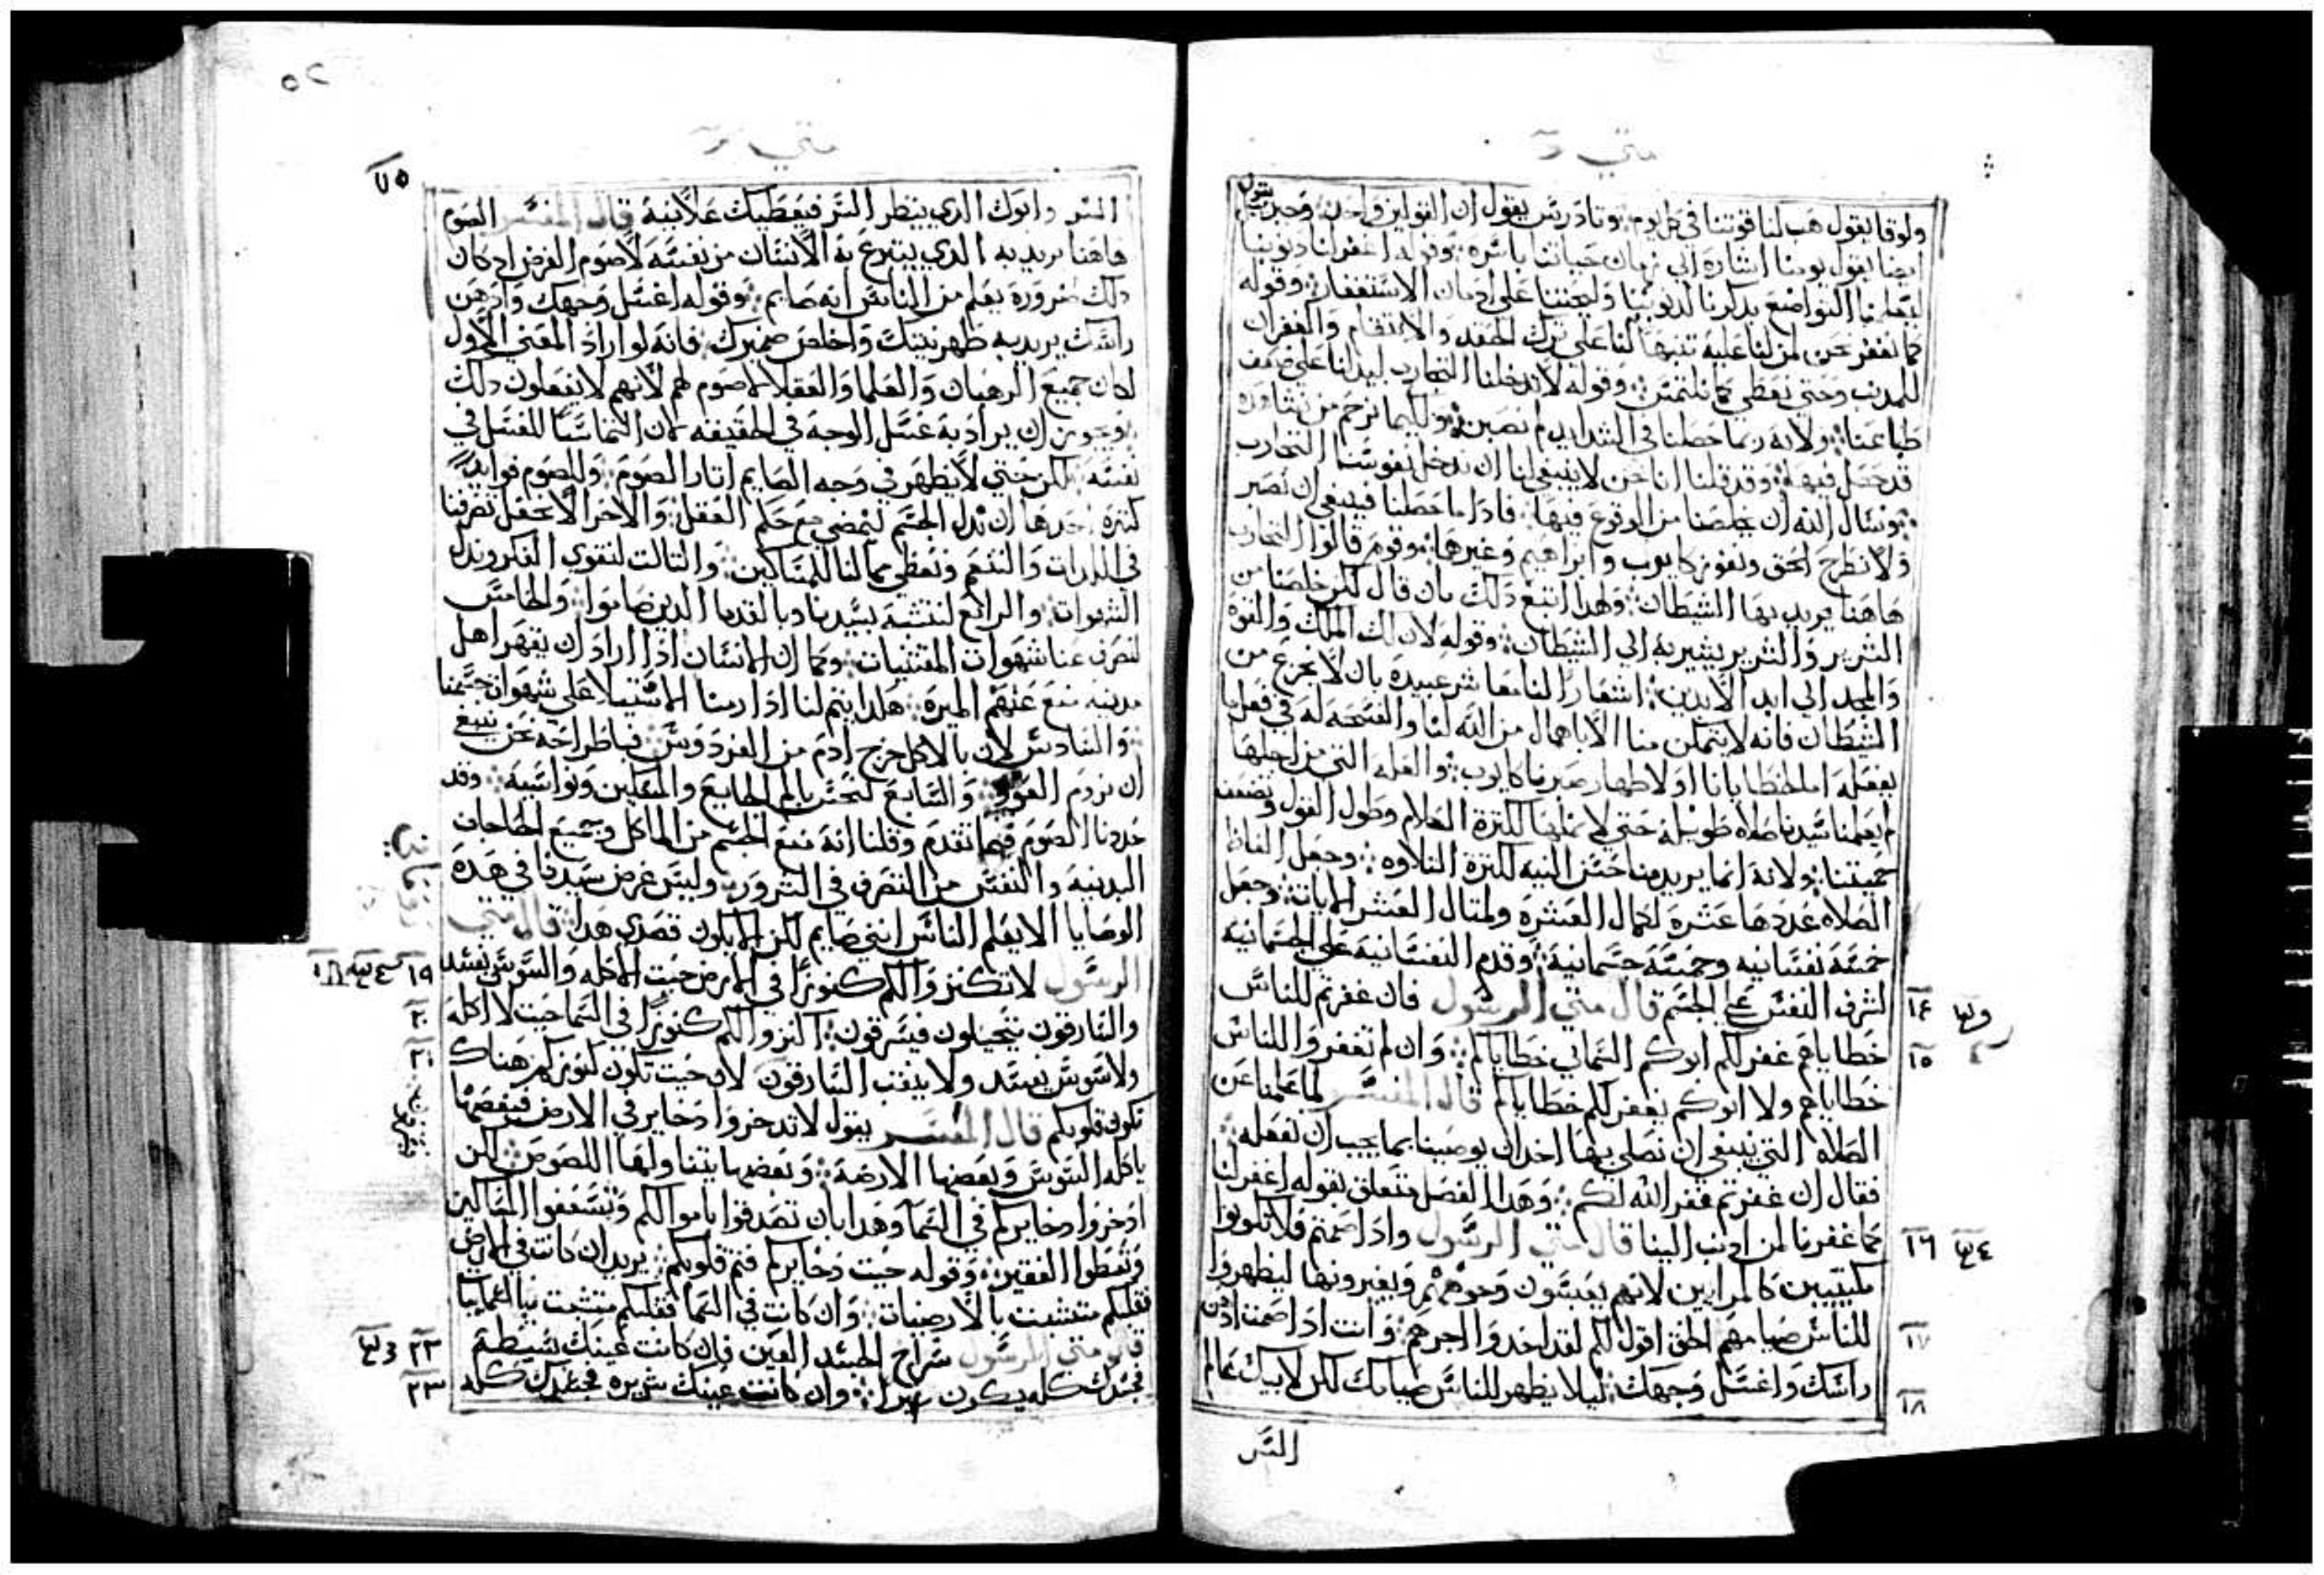 متي
ولوقا يقول هب لنا قوتنا في كل يوم وتادرس يقول ان القولين واحد
ايضا يقول يومنا اشاره الي زمان حياتنا باسره وقوله اغفر لنا دنوبنا
ليعلمنا التواضع بدكرنا لدنوبنا وليحتنا علي ادمان الاستغفار وقوله
كما نغفر نحن لمن لنا عليه تنبيها لنا علي ترك الحقد والانتقام والغفران
للمدنب وحتي نعطي كما نلتمس وقوله لا تدخلنا التجارب ليدلنا علي ضعف
طباعنا ولانه ربما حصلنا في الشدايد لم نصبر ولكيما نرحم من نشاهده
قد حصل فيها وقد قلنا اننا نحن لا ينبغي لنا ان ندخل نفوسنا التجارب
ونسال الله ان يخلصنا من الوقوع فيها فادا ما حصلنا فينبغي ان نصبر
ولا نطرح الحق ونفوز كايوب وابراهيم وغيرها وقوم قالوا التجارب
هاهنا يريد بها الشيطان ولهدا اتبع دلك بان قال لكن خلصنا من
الشرير والشرير يشير به الي الشيطان وقوله لان لك الملك والقوه
والمجد الي ابد الابدين اشعارا لنا معاشر عبيده بان لا نجزع من
الشيطان فانه لا يتمكن منا الا باهمال من الله لنا والفسحه له في فعل ما
يفعله اما لخطايانا او لاظهار صبرنا كايوب والعله التي من اجلها
لم يعلمنا سيدنا صلاه طويله حتي لا نملها لكثرة الكلام وطول القول وتضعف
حميتنا ولانه انما يريد منا حسن النيه لا كثرة التلاوه وجعل الفاظ
الصلاه عددها عشره لكمال العشره ولمتال العشر الايات وجعل
خمسة نفسانيه وخمسة جسمانية وقدم النفسانية علي الجسمانية
لشرف النفس علي الجسم قال متي الرسول فان غفرتم للناس
خطاياهم غفر لكم ابوكم السماني خطاياكم وان لم تغفروا للناس
خطاياهم ولا ابوكم يغفر لكم خطاياكم قال المفسر لما علمنا عن
الصلاه التي ينبغي ان نصلي بها اخد ان يوصينا بما يجب ان نفعله
فقال ان غفرتم غفر الله لكم وهدا الفصل متعلق بقوله اغفر لنا
كما غفرنا لمن ادنب الينا قال متي الرسول وادا صمتم فلا تكونوا
مكتيبين كالمرايين لانهم يعبسون وجوههم ويغيرونها ليظهروا
للناس صيامهم الحق اقول لكم لقد اخدوا اجرهم وانت ادا صمت ادهن
راسك واغسل وجهك ليلا يظهر للناس صيامك لكن لابيك عالم
السر
١٤
١٥
١٦
١٧
١٨
متي
٧٥
السر وابوك الدي ينظر السر فيعطيك علانية قال المفسر الصوم
هاهنا يريد به الدي يتبرع به الانسان من نفسه لا صوم الفرض اد كان
دلك ضرورة يعلم من الناس انه صايم وقوله اغسل وجهك وادهن
راسك يريد به طهر نيتك واخلص ضميرك فانه لو اراد المعني الاول
لكان جميع الرهبان والعلما والعقلا لا صوم لهم لانهم لا يفعلون دلك
ويجوز ان يراد به غسل الوجه في الحقيقه
نفسه لكن حتي لا يظهر في وجه الصايم اتار الصوم وللصوم فوايد
كتيره احدها ان ندل الجسم ليمضي مع حكم العقل والاخر الا نجعل تصرفنا
في اللدات والتنعم ونعطي مما لنا للمساكين والتالت لتقوي الفكر وندل
الشهوات والرابع لنتشبه بسيدنا وبالقدما الدين صاموا والخامس
لنصرف عنا شهوات المقتنيات وكما ان الانسان ادا اراد ان يقهر اهل
مدينه منع عنهم الميره هكدا يتم لنا ادا رمنا الاستيلا علي شهوات جسمنا
والسادس لان بالاكل خرج ادم من الفردوس فباطراحه نحن ينبغي
ان نروم العود والسابع لنحس بالم الجايع والمسكين ونواسيه وقد
حددنا الصوم فيما تقدم وقلنا انه منع الجسم من الماكل وجميع الحاجات
البدنية والنفس من التصرف في الشرور وليس غرض سيدنا في هده
الوصايا الا يعلم الناس انني صايم لكن الا يكون قصدي هدا قال متي
الرسول لا تكنزوا لكم كنوزا في الارض حيت الاكله والسوس يفسد
والسارقون يتحيلون فيسرقون اكنزوا لكم كنوزا في السما حيت لا اكله
ولا سوس يفسد ولا ينقب السارقون لان حيت تكون كنوزكم هناك
تكون قلوبكم قال المفسر يقول لا تدخروا دخاير في الارض فبعضها
ياكله السوس وبعضها الارضه وبعضها يتناولها اللصوص لكن
ادخروا دخايركم في السما وهدا بان تصدقوا باموالكم وتسعفوا المساكين
وتعطوا الفقير وقوله حيت دخايركم فتم قلوبكم يريد ان كانت في الارض
فقلبكم متشبت بالارضيات وان كانت في السما فقلبكم متشبت بالسماييات
قال متي الرسول سراج الجسد العين فان كانت عينك بسيطة
فجسدك كله يكون نيرا وان كانت عينك شريره فجسدك كله
١٩
٢٠
٢١
٢٢
٢٣